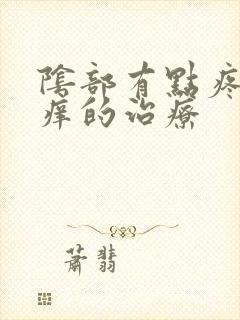 陰部有點疼
痒的治療
蕭翡